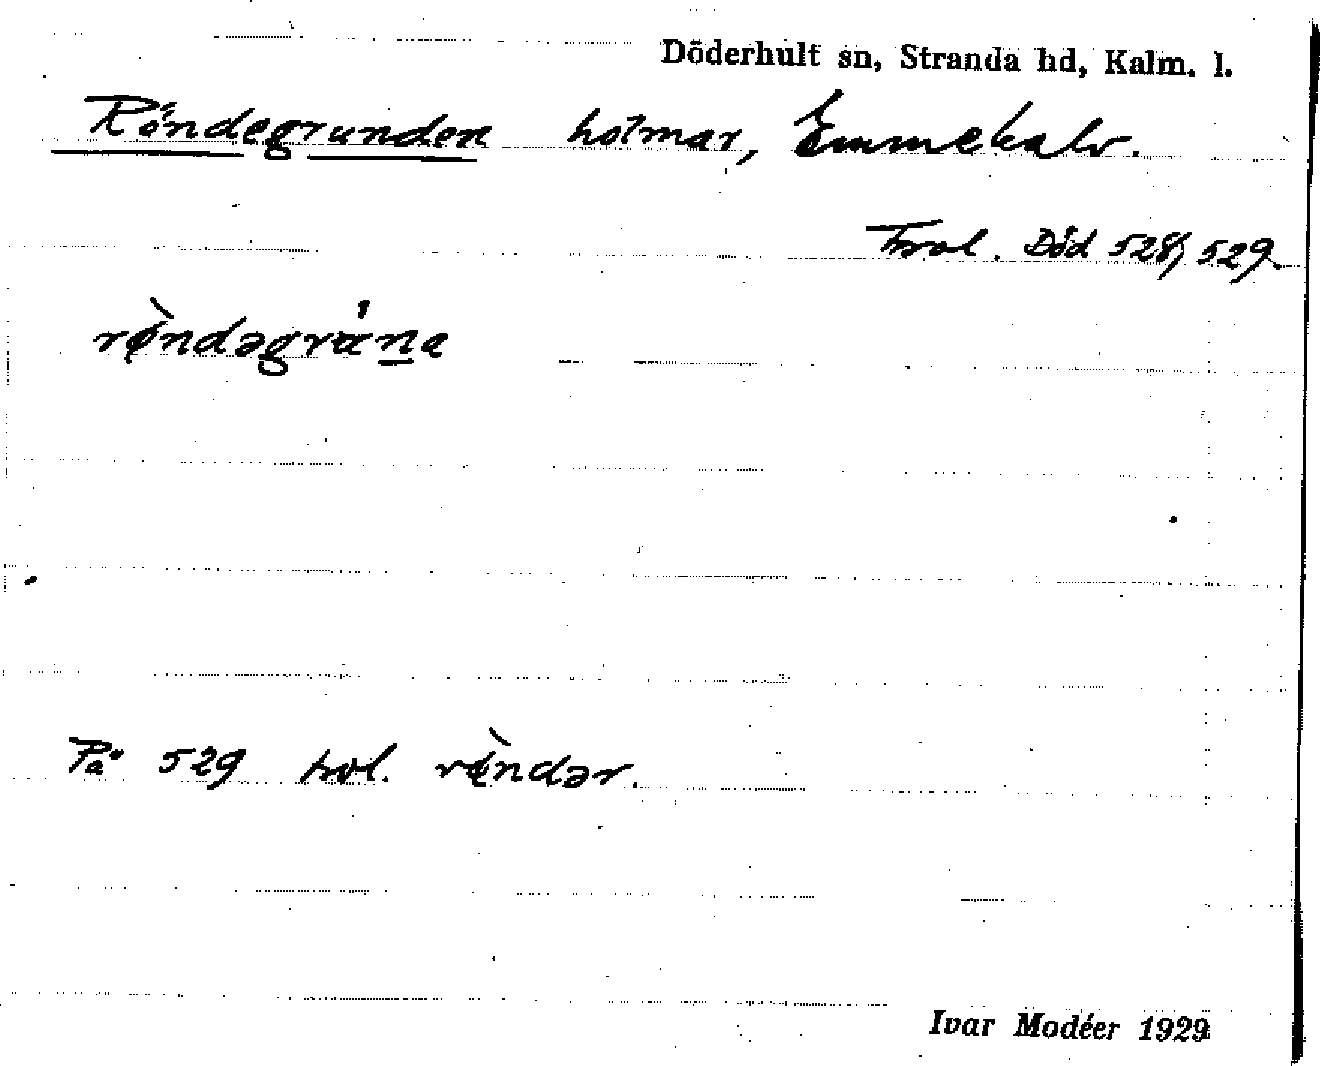 Döderhult sn, Stranda hd, Kalm. l.
Röndegrunden holmar, Emmekalv.
Trol. Död 528, 529.
rø̀ndəgrúna
På 529 trol. rø̀ndər.
Ivar Modéer 1929